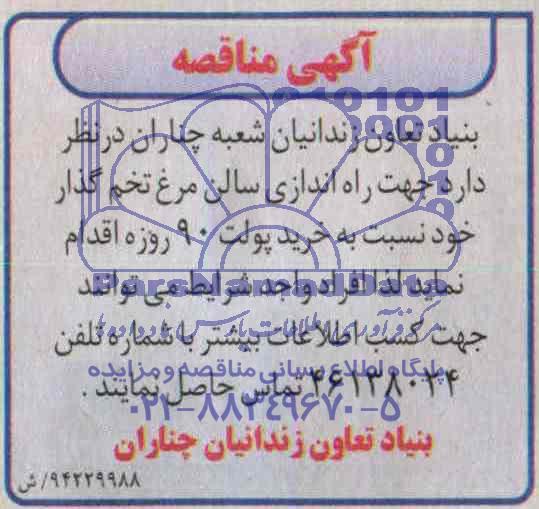 آگهی مناقصه
بنیاد تعاون زندانیان شعبه چناران درنظر
دارد جهت راه اندازی سالن مرغ تخم گذار
خود نسبت به خرید پولت ۹۰ روزه اقدام
نماید لذا افراد واجد شرایط می توانند
جهت کسب اطلاعات بیشتر با شماره تلفن
۴۶۱۳۸۰۲۴ تماس حاصل نمایند .
بنیاد تعاون زندانیان چناران
۹۴۲۲۹۹۸۸/ش
ParsNamadData
پایگاه اطلاع رسانی مناقصه و مزایده
۰۲۱-۸۸۳۴۹۶۷۰-۵